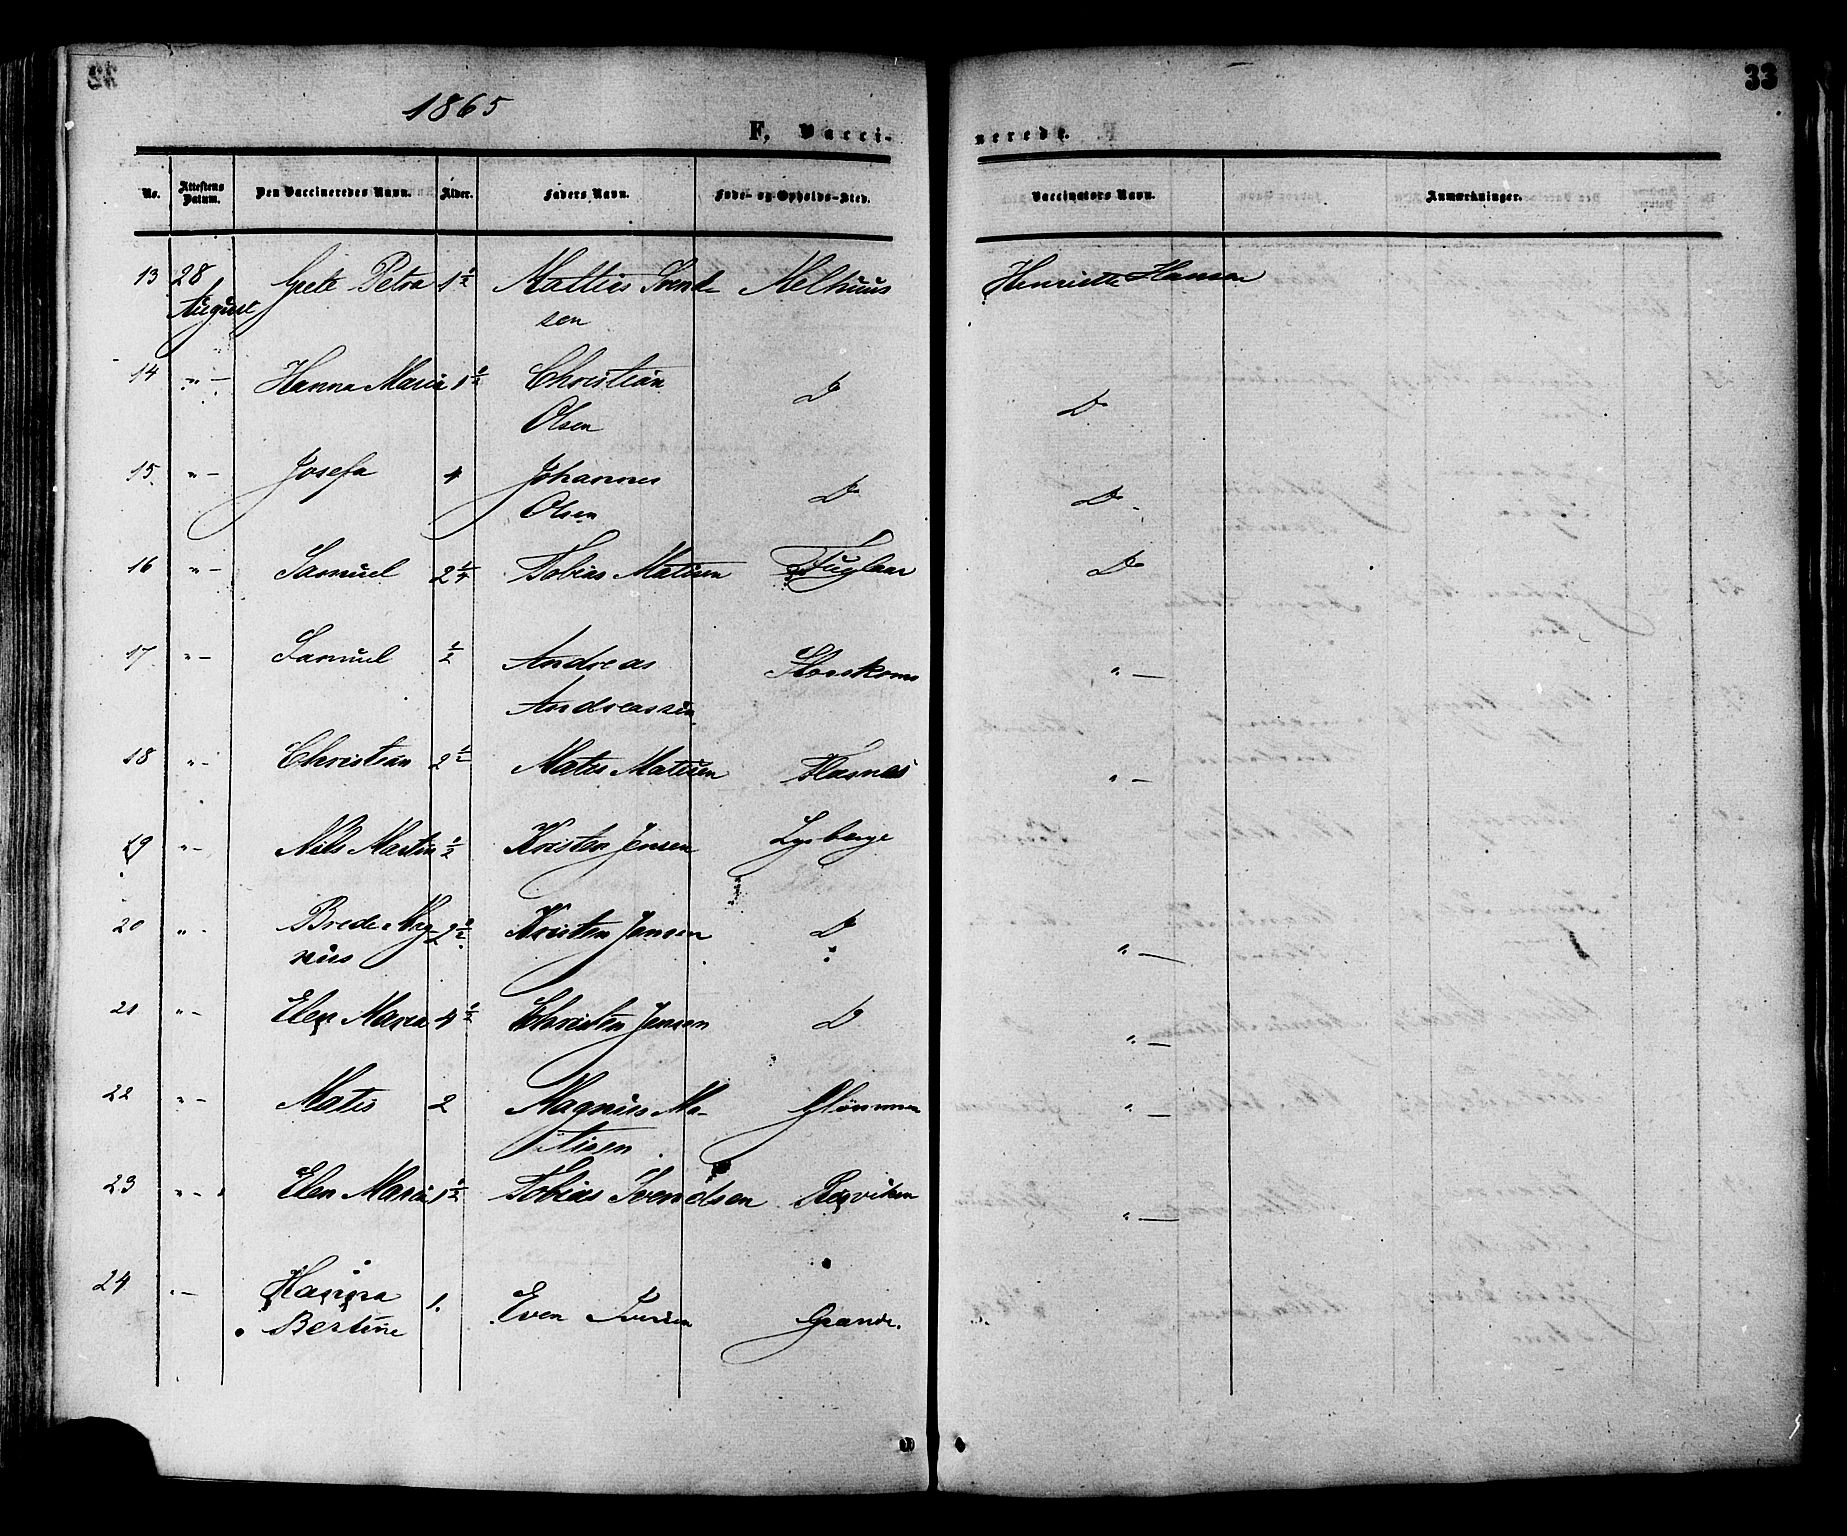 33
1865
F. Vaccinerede.
No. Attestens Datum. Den Vaccineredes Navn. Alder. Faders Navn. Føde- og Opholds-Sted. Vaccinators Navn. Anmærkninger.
13 28 August Grete Petra 1 1/2 Mattias Svend Melhuus Henriette Hansen
sen
14 "- Hanna Maria 1 1/2 Christian Do Do
Olsen
15 "- Josefa 4 Johannes Do Do
Olsen
16 "- Samuel 2 1/4 Tobias Matisen Fuglaas Do
17 "- Samuel 1/2 Andreas "-
Andreassen
18 "- Christian 2 1/2 Mates Matisen Flasnæs "-
19 "- Nils Martin 1/2 Kristen Jensen Lysberge
20 "- Brede Mag 2 1/2 Kristen Jensen Do "-
nus
21 "- Elen Maria 4 1/2 Christen Jensen Do "-
22 "- Mates 2 Magnus Ma- Glömmen "-
tisen
23 "- Elen Maria 1 1/2 Tobias Svendsen Regviken "-
24 "- Hanna 1. Even Iversen Grande.
Bertine